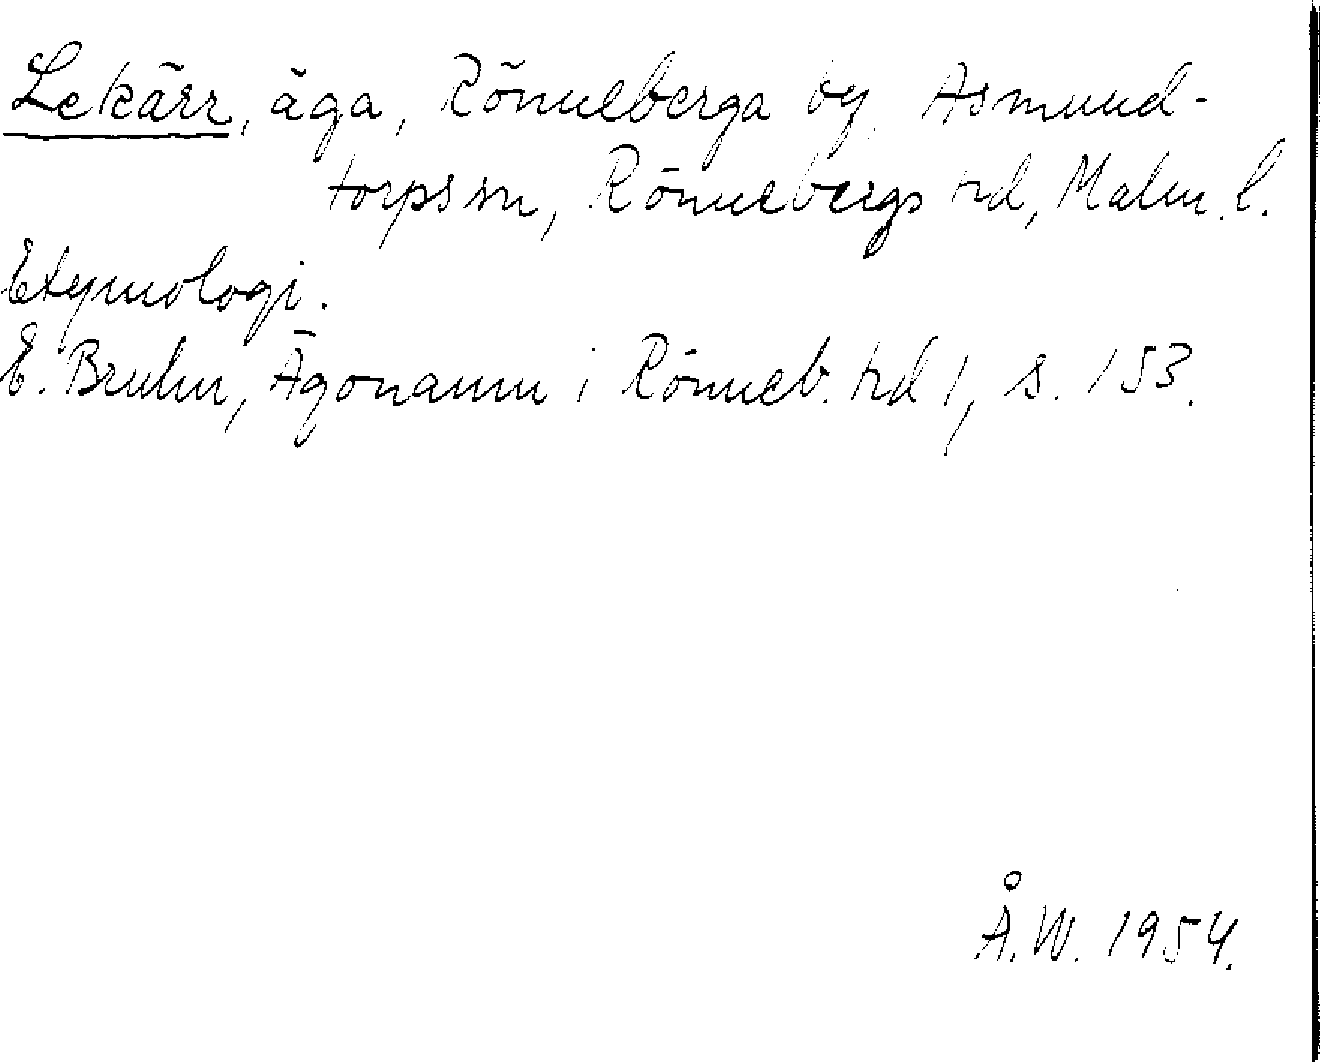 Lekärr, äga, Rönneberga by, Asmund-
torps sn, Rönnebergs hd, Malm. l.
Etymologi.
E. Bruhn, Ägonamn i Rönneb. hd 1, s. 153.
Å. W. 1954.